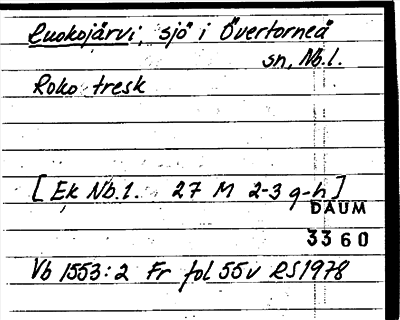 Luokojärvi, sjö i Övertorneå
sn, Nb.l.
Roko tresk
[Ek Nb.l. 27 M 2-3 g-h]
DAUM
3360
Vb 1553:2 Fr fol 55v RS1978